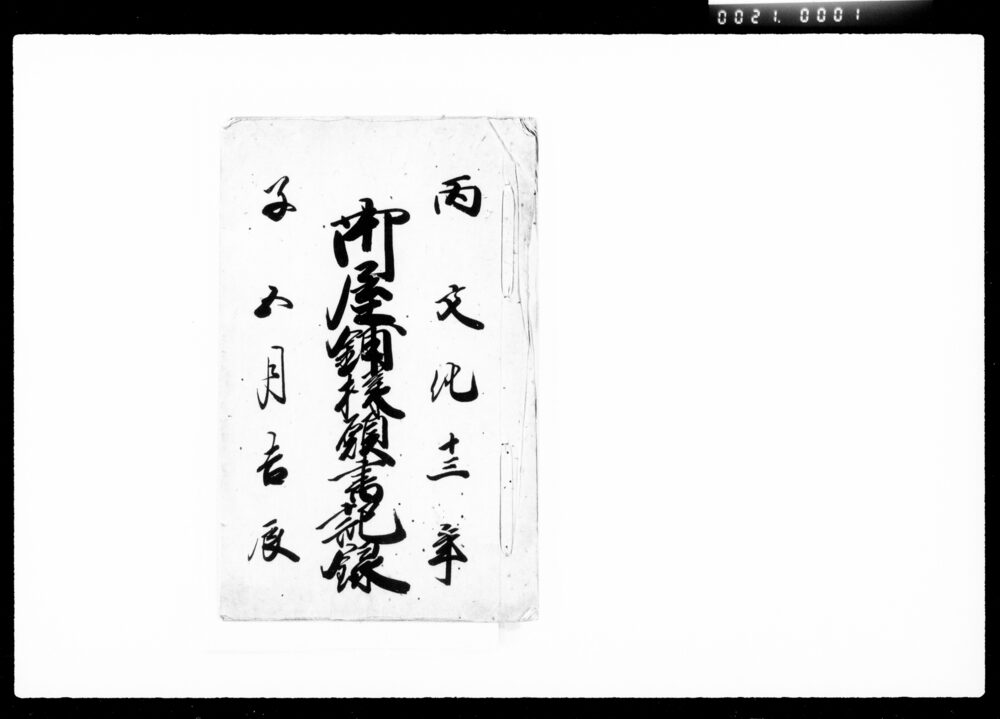 0021. 0001
丙 文化十三年
御屋鋪様願書記録
子 五月吉辰